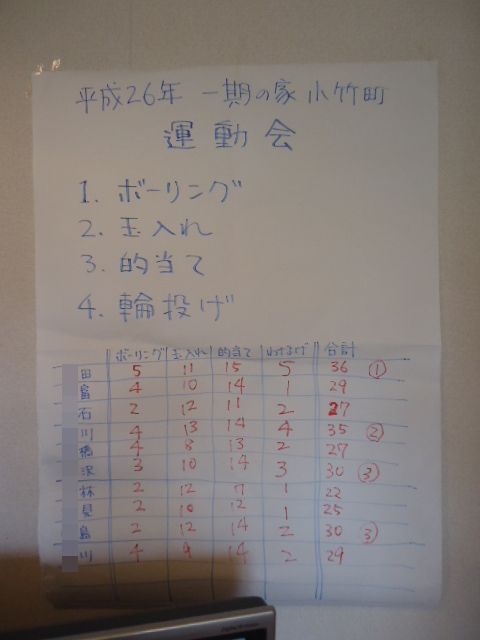 平成26年 一期の家 小竹町
運動会
1. ボーリング
2. 玉入れ
3. 的当て
4. 輪投げ
ボーリング 玉入れ 的当て わなげ 合計
田 5 11 15 5 36 ①
富 4 10 14 1 29
石 2 12 11 2 27
川 4 13 14 4 35 ②
橋 4 8 13 2 27
沢 3 10 14 3 30 ③
林 2 12 7 1 22
見 2 10 12 1 25
島 2 12 14 2 30 ③
川 4 9 14 2 29